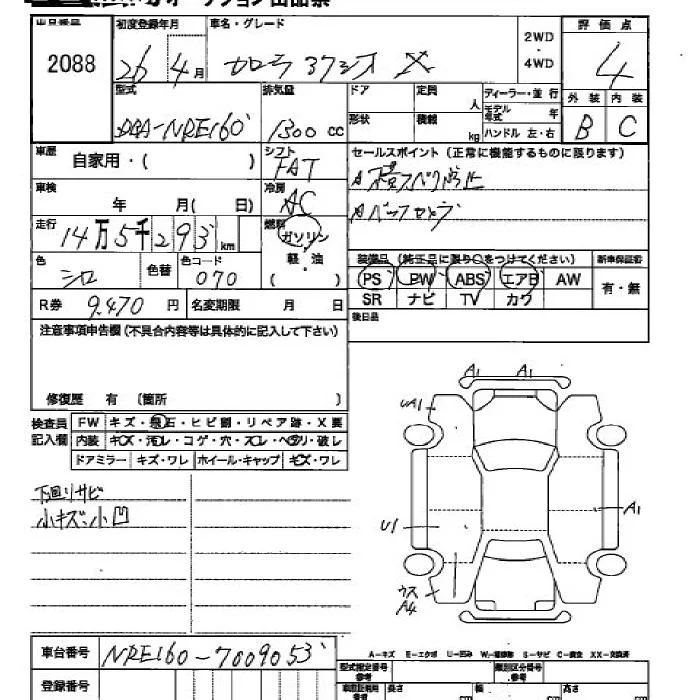 オークション出品票
出品番号 初度登録年月 車名・グレード 評価点
2088 26 4月 カローラアクシオ X 2WD・4WD 4
型式 排気量 ドア 定員 人 ディーラー・並行 外装 内装
DBA-NRE160 1300 CC 形状 積載 kg モデル年式 年 B C
ハンドル 左・右
車歴 自家用・( ) シフト FAT セールスポイント(正常に機能するものに限ります)
車検 年 月( 日) 冷房 AC 横スベリ防止
バックカメラ
走行 14万5千293km 燃料 ガソリン
軽・油
( )
装備品(純正品に限り○をつけてください) 新車保証書
色 シロ 色替 色コード 070 PS PW ABS エアB AW 有・無
SR ナビ TV カワ
R券 9,470円 名変期限 月 日 後日品
注意事項申告欄(不具合内容等は具体的に記入して下さい)
修復歴 有 〔箇所 〕
検査員記入欄 FW キズ・飛石・ヒビ割・リペア跡・X要
内装 キズ・汚レ・コゲ・穴・スレ・ヘタリ・破レ
ドアミラー キズ・ワレ ホイール・キャップ キズ・ワレ
下回リサビ
小キズ、小凹
A1 A1
UA1
A1
U1
ウス
A4
A-キズ E-エクボ U-凹み W-補修跡 S-サビ C-腐食 XX-交換済
車台番号 NRE160-7009053
型式指定番号 類別区分番号
登録番号 長さ cm 幅 cm 高さ cm